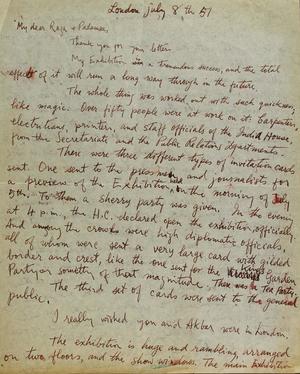 London July 8th 51
My dear Raza & Padamsee,
Thank you for your letter.
My Exhibition was a tremendous success, and the total
effect of it will run a long way through in the future.
The whole thing was worked out with such quickness,
like magic. Over fifty people were at work on it: Carpenters,
electritians, printers, and staff officials of the India House,
from the Secretariate and the Public Relations departments.
There were three different types of invitation cards
sent. One sent to the pressmen, and journalists for
a preview of the Exhibition, on the morning of July
5th. To them a sherry party was given. In the evening
at 4 p.m., the H.C. declared open the exhibition officially,
And among the crowds were high diplomatic officials,
all of whom, were sent a very large card with gilded
border and crest, like the one sent for the King's Garden
Party or something of that magnitude. There was a Tea Party.
The third set of cards were sent to the general
public.
I really wished you and Akbar were in London.
The exhibition is huge and rambling arranged
on two floors, and the show windows. The main Exhibition